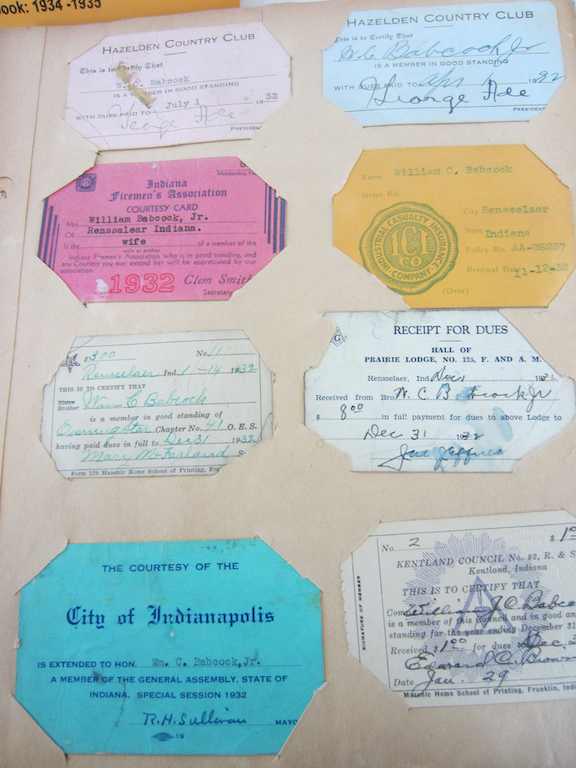 ook: 1934 -1935
HAZELDEN COUNTRY CLUB
This is to Certify That
W. C. Babcock
IS A MEMBER IN GOOD STANDING
WITH DUES PAID TO July 1 1932
George Ade
PRESIDENT
HAZELDEN COUNTRY CLUB
This is to Certify That
W. C. Babcock Jr
IS A MEMBER IN GOOD STANDING
WITH DUES PAID TO Apr 1 1932
George Ade
PRESIDENT
Indiana
Firemen's Association
COURTESY CARD
Mrs. William Babcock, Jr.
Of Rensselear Indiana.
Is the wife of a member of the
Indiana Firemen's Association who is in good standing, and
any Courtesy you may extend her will be appreciated by our
association.
1932 Clem Smith
Secretary
Name William C. Babcock
Street No.
City Rensselaer
State Indiana
Policy No.
Renewal Date 11-12-32
(Over)
INDUSTRIAL CASUALTY INSURANCE COMPANY
ICI
CO
$3.00 No. 11
Rensselaer Ind. 1-14 1932
THIS IS TO CERTIFY THAT
Sister
Brother Wm C Babcock
is a member in good standing of
Evening Star Chapter No. 141 O. E. S.
having paid dues in full to Dec 31 1932
Mary McFarland
Form 129 Masonic Home School of Printing,
RECEIPT FOR DUES
HALL OF
PRAIRIE LODGE, NO. 125, F. AND A. M.
Rensselaer, Ind.
Received from Bro. W. C. Babcock Jr
$ 8.00 in full payment for dues to above Lodge to
Dec 31 1932
THE COURTESY OF THE
City of Indianapolis
IS EXTENDED TO HON. Wm. C. Babcock, Jr.
A MEMBER OF THE GENERAL ASSEMBLY, STATE OF
INDIANA. SPECIAL SESSION 1932
R. H. Sullivan MAYOR
No. 2
KENTLAND COUNCIL No. 82, R. & S
Kentland, Indiana
THIS IS TO CERTIFY THAT
William J. C. Babcock
is a member of this Council and in good and
standing for the year ending December 31
Received $1.00 for dues Dec.
Edward C. Brown
Date Jan 29
Masonic Home School of Printing, Franklin, Ind
SIGNATURE OF MEMBER